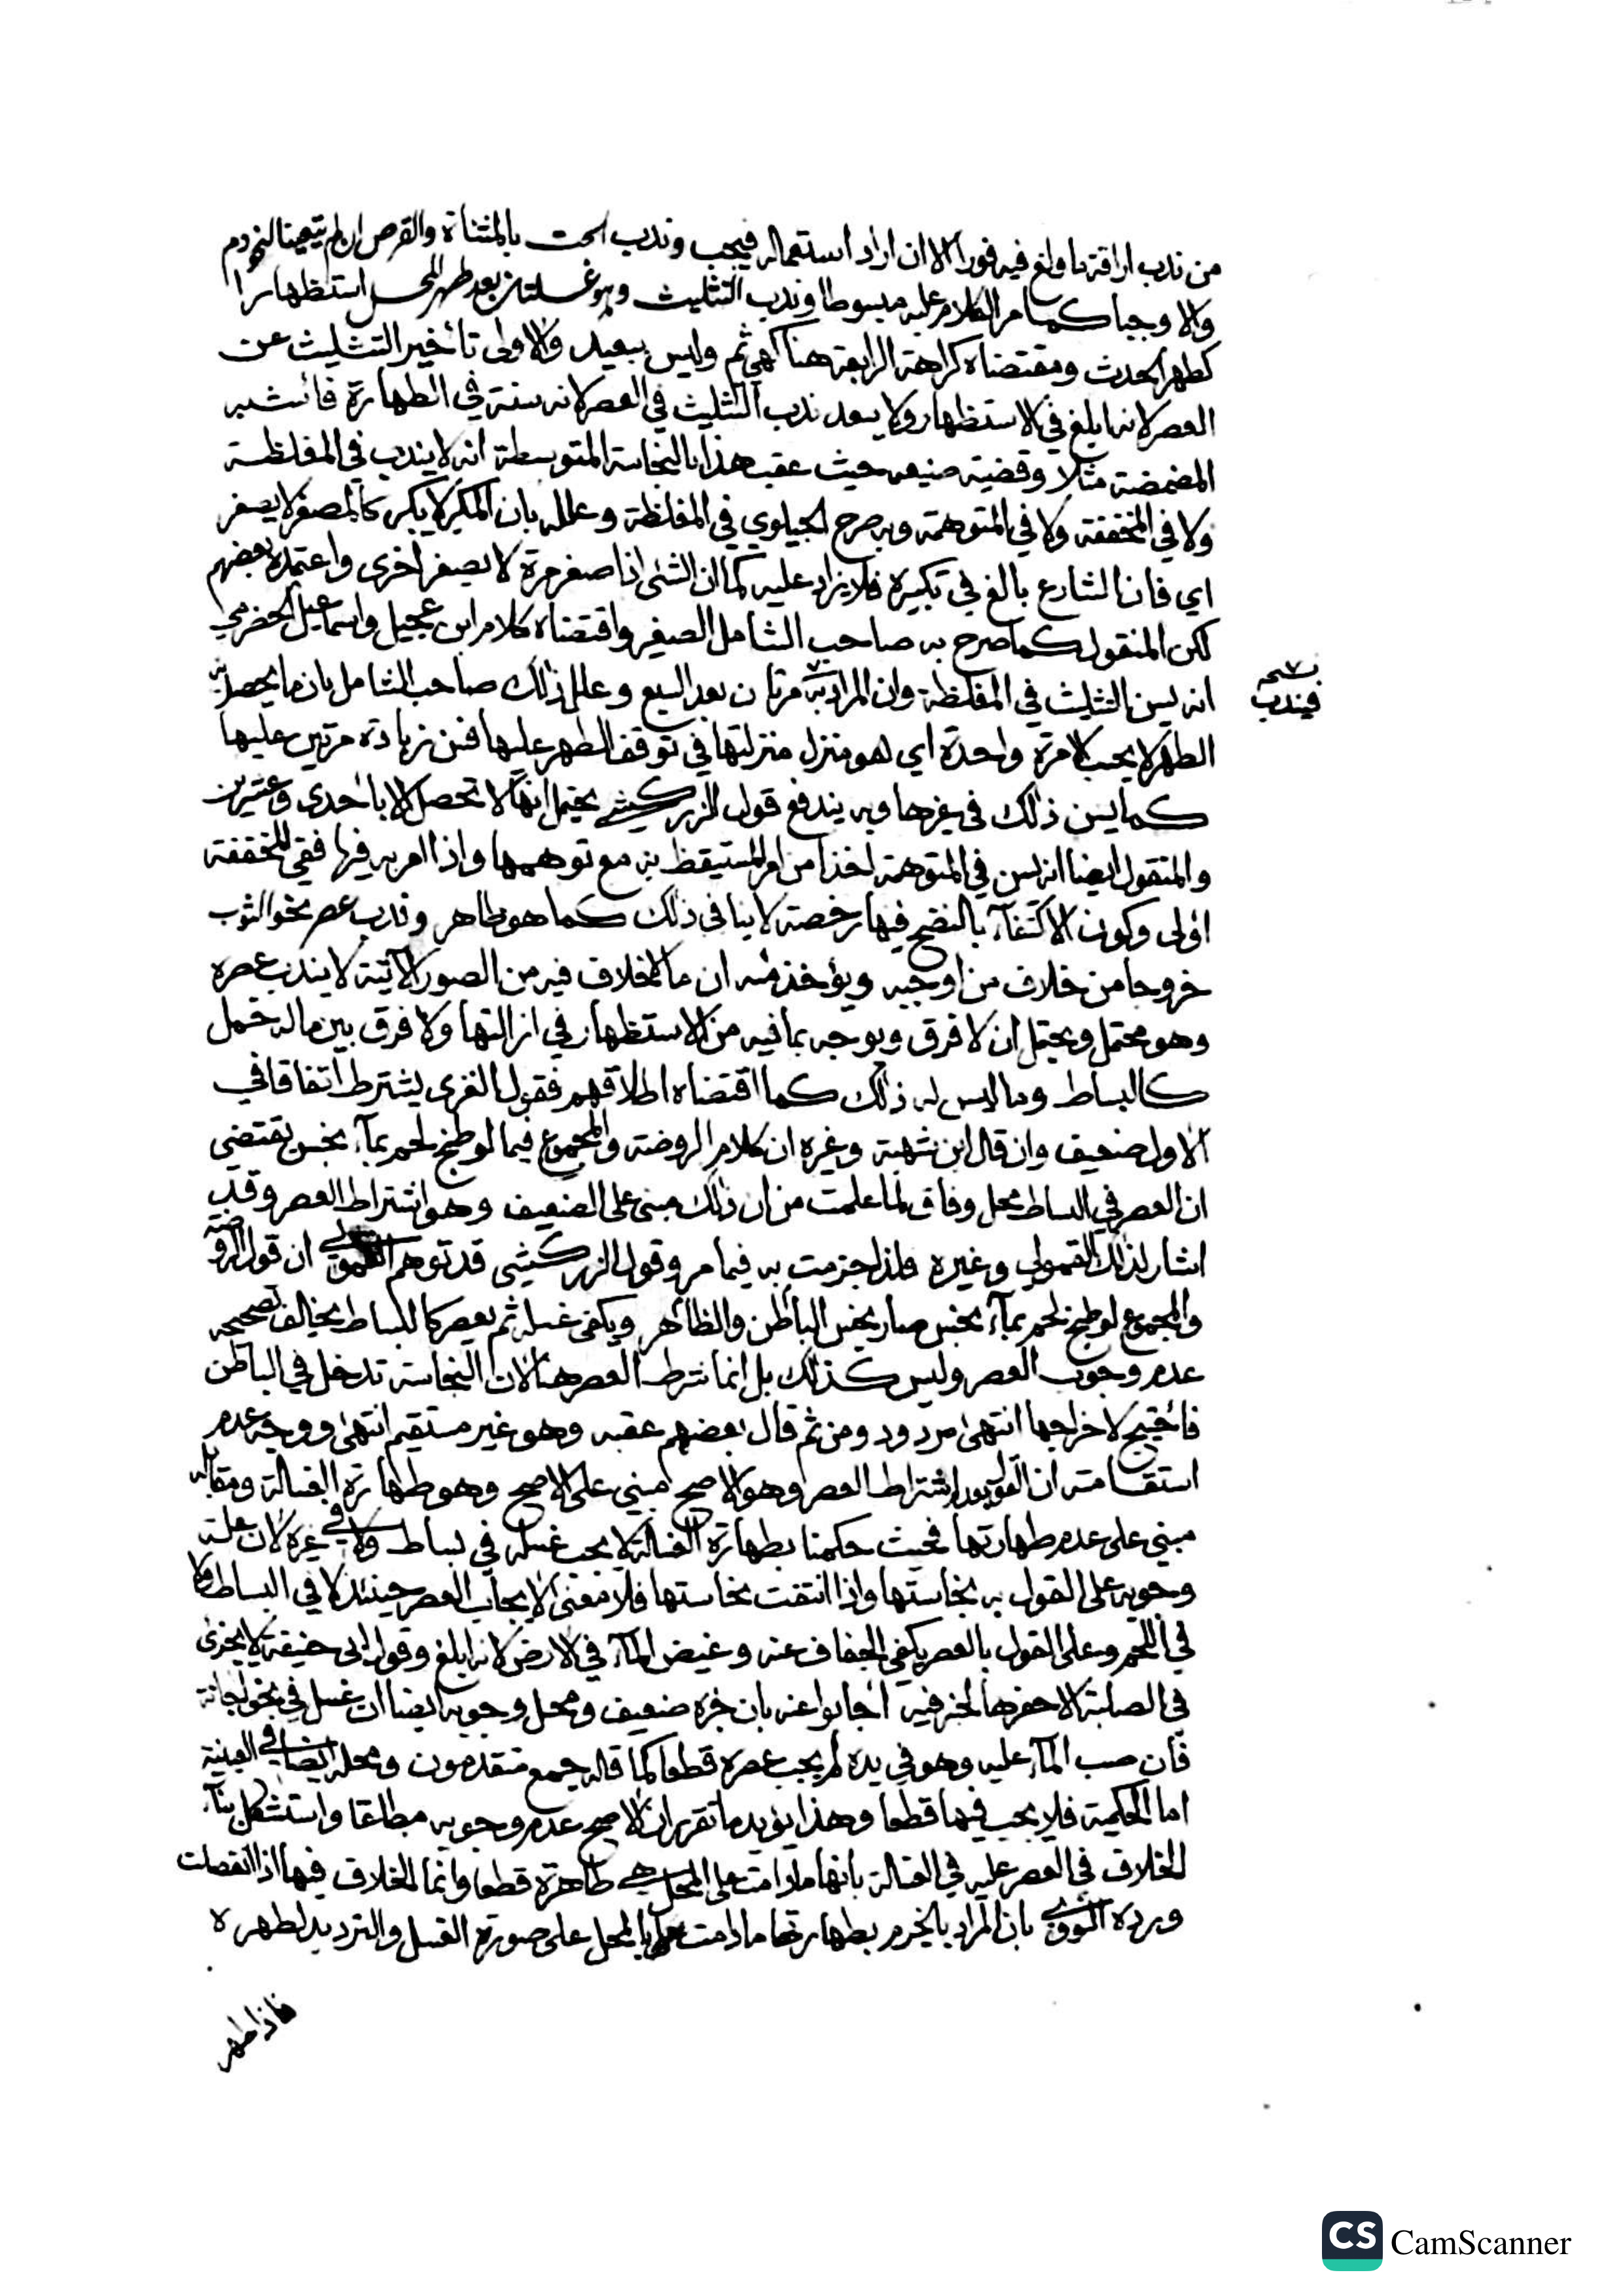 من ندب اراقة ما ولغ فيه فورا الا ان اراد استعماله فيجب وندب الحت بالمثناة والقرص ان لم يتعينا لنحو دم
والا وجبا كما مر الكلام عليه مبسوطا وندب التثليث وهو غسلتان بعد طهر المحل استظهارا
كطهر الحدث ومقتضاه كراهة الرابعة هنا كهي ثم وليس ببعيد والاولى تأخير التثليث عن
العصر لانه ابلغ في الاستظهار ولا يبعد ندب التثليث في العصر لانه سنة في الطهارة فأشبه
المضمضة مثلا وقضية صنيعه حيث عقب هذا بالنجاسة المتوسطة انه لا يندب في المغلظة
ولا في المخففة ولا في المتوهمة وبه صرح الجيلوي في المغلظة وعلله بان المكبر لا يكبر كالمصغر لا يصغر
اي فان الشارع بالغ في تكبيره فلا يزاد عليه كما ان الشئ اذا صغر مرة لا يصغر اخرى واعتمده بعضهم
لكن المنقول كما صرح به صاحب الشامل الصغير واقتضاه كلام ابن عجيل واسماعيل الحضرمي
انه يسن التثليث في المغلظة وان المراد به مرتان بعد السبع وعلل ذلك صاحب الشامل بان ما يحصل به
نسخة
فيندب
الطهر لا يحسب الا مرة واحدة اي هو منزل منزلتها في توقف الطهر عليها فسن زيادة مرتين عليها
كما يسن ذلك في غيرها وبه يندفع قول الزركشي يحتمل انها لا تحصل الا باحدى وعشرين
والمنقول ايضا انه يسن في المتوهمة اخذا من امر المستيقظ به مع توهمها واذا امر به فيها ففي المخففة
اولى وكون الاكتفاء بالنضح فيها رخصة لا ينافي ذلك كما هو ظاهر وندب عصر نحو الثوب
خروجا من خلاف من اوجبه ويؤخذ منه ان ما لا خلاف فيه من الصور الآتية لا يندب عصره
وهو محتمل ويحتمل ان لا فرق ويوجه بما فيه من الاستظهار في ازالتها ولا فرق بين ما له خمل
كالبساط وما ليس له ذلك كما اقتضاه اطلاقهم فقول الغزى يشترط اتفاقا في
الاول ضعيف وان قال ابن شهبة وغيره ان كلام الروضة والمجموع فيما لو طبخ لحم بماء نجس يقتضي
ان العصر في البساط محل وفاق لما علمت من ان ذلك مبنى على الضعيف وهو اشتراط العصر وقد
اشار لذلك القمولي وغيره فلذا جزمت به فيما مر وقول الزركشي قد توهم القمولي ان قول الروضة
والمجموع لو طبخ لحم بماء نجس صار نجس الباطن والظاهر ويكفى غسله ثم يعصر كالبساط يخالف تصحيحه
عدم وجوب العصر وليس كذلك بل انما شرط العصر هنا لان النجاسة تدخل في الباطن
فاحتيج لاخراجها انتهى مردود ومن ثم قال بعضهم عقبه وهو غير مستقيم انتهى ووجه عدم
استقامته ان القول بعدم اشتراط العصر وهو الاصح مبني على الاصح وهو طهارة الغسالة ومقابله
مبني على عدم طهارتها فحيث حكمنا بطهارة الغسالة لا يجب غسله في بساط ولا في غيره لان علة
وجوبه على القول به نجاستها واذا انتفت نجاستها فلا معنى لايجاب العصر حينئذ لا في البساط ولا
في اللحم وعلى القول بالعصر يكفي الجفاف عنه وغيض الماء في الارض لانه ابلغ وقول ابي حنيفة لا يجزئ
في الصلبة الا حفرها لخبر فيه اجابوا عنه بان خبره ضعيف ومحل وجوبه ايضا ان غسل في نحو اجانة
فان صب الماء عليه وهو في يده لم يجب عصره قطعا كما قاله جمع متقدمون ومحله ايضا في العينية
اما الحكمية فلا يجب فيها قطعا وهذا يؤيد ما تقرر ان الاصح عدم وجوبه مطلقا واستشكل بناء
الخلاف في العصر عليه في الغسالة بانها ما دامت على المحل هي طاهرة قطعا وانما الخلاف فيها اذا انفصلت
ورده بان المراد بالجزم بطهارتها ما دامت بالمحل على صورة الغسل والترديد لطهره
فاذا طهر
CS CamScanner